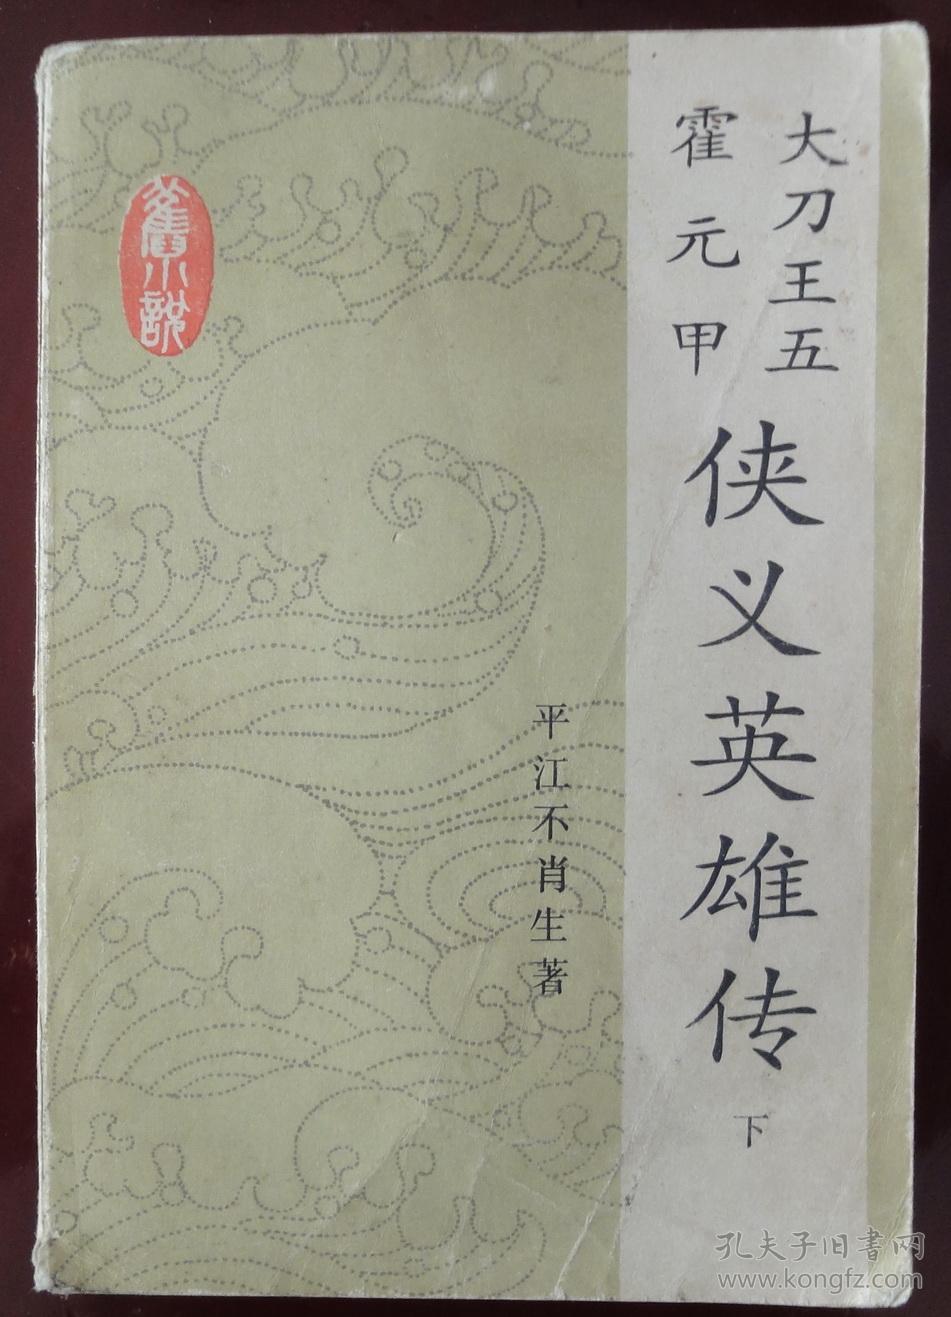 大刀王五
霍元甲
侠义英雄传
下
平江不肖生著
舊小説
孔夫子旧書网
www.kongfz.com